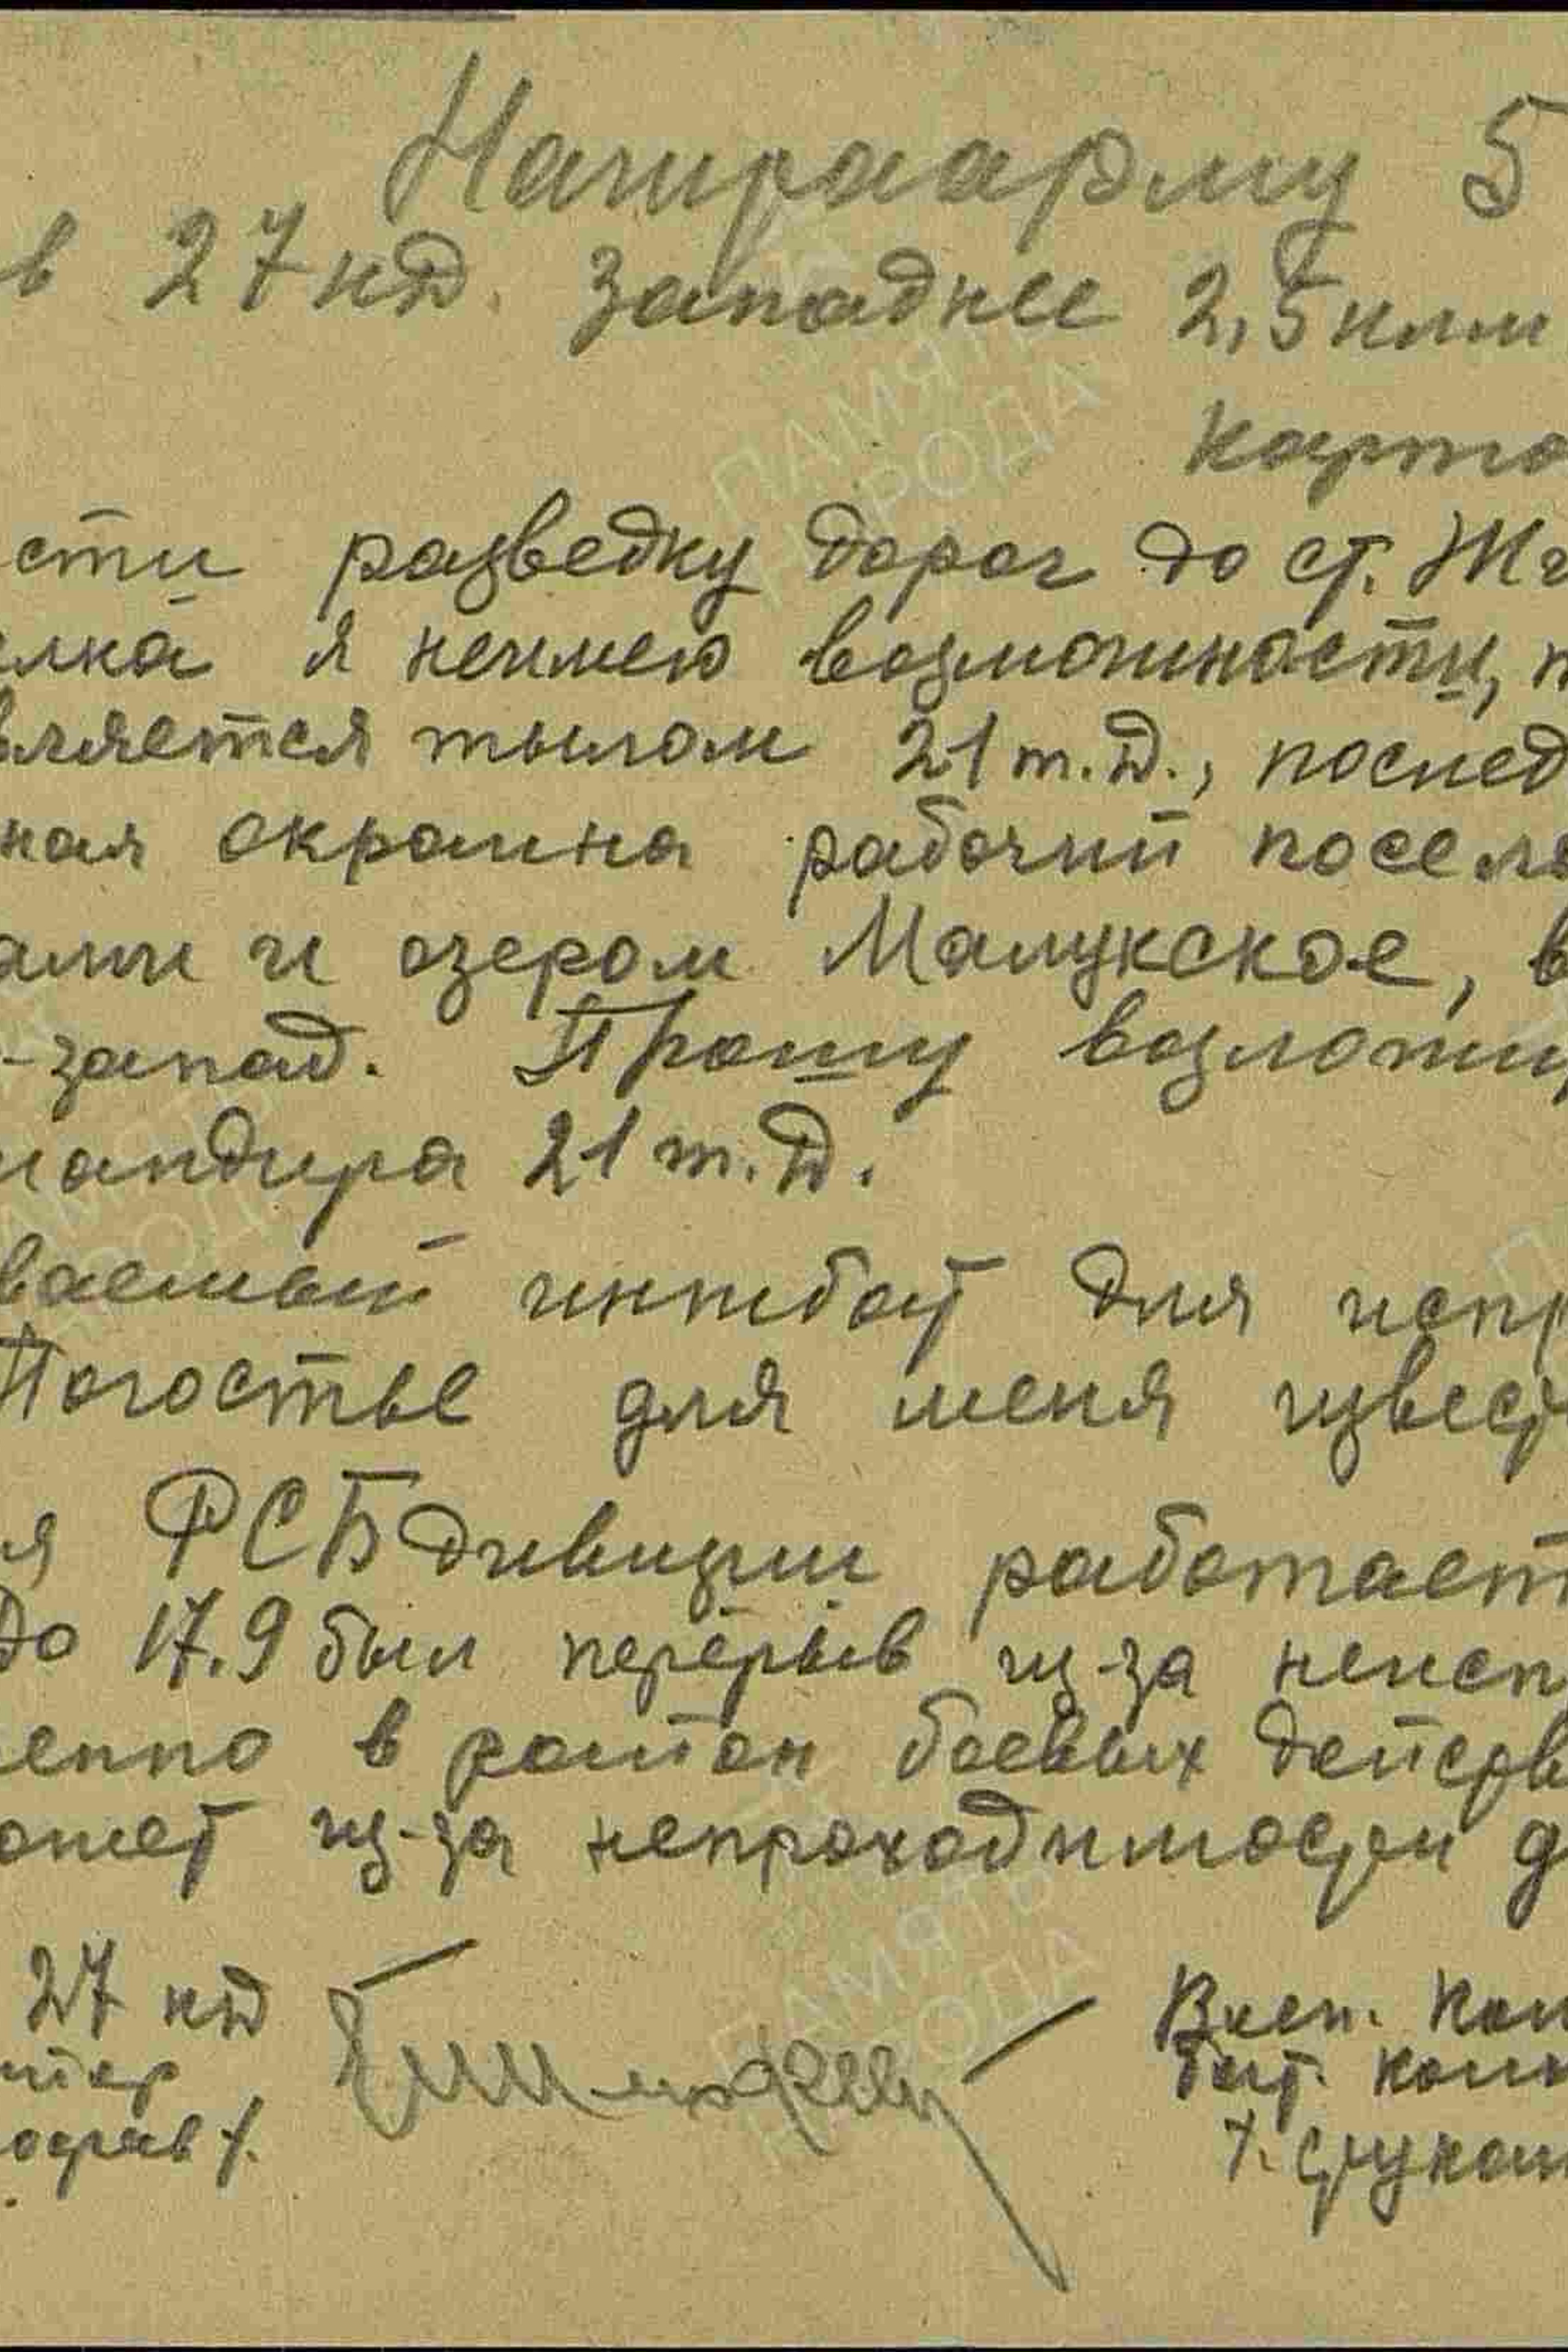 Начшраарму 5
в 27 кд. западнее 2,5 клм
карта
сти разведку дорог до ст. Жи
елка я неимею возможности, т
вляется тылом 21 т.д., послед
ная окраина рабочий посел
ами и озером Малукское, в
-запад. Прошу возложи
мандира 21 т.д.
ваемый инжбат для испр
Погостье для меня извест
я РСБ дивизии работает
до 17.9 был перерыв из-за неисп
енно в район боевых действ
ожет из-за непроходимости д
27 кд
Воен. Ком
бат. коми
ПАМЯТЬ
НАРОДА
ПАМЯТЬ
НАРОДА